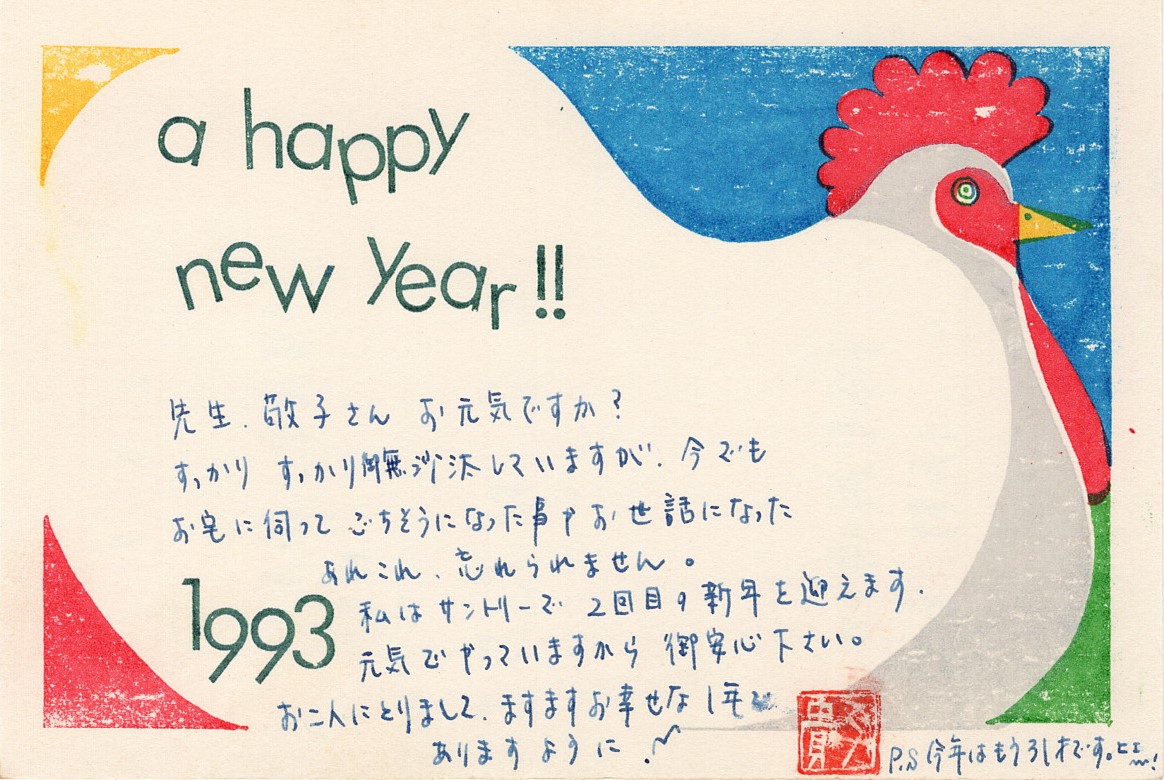 a happy
new Year!!
1993
先生、敬子さん お元気ですか？
すっかり すっかり御無沙汰していますが、今でも
お宅に伺って ごちそうになった事や お世話になった
あれこれ、忘れられません。
私は サントリーで 2回目の新年を迎えます.
元気で やっていますから 御安心下さい。
お二人にとりまして、ますますお幸せな1年で
ありますように.
P.S 今年はもう25才です。ヒェー!